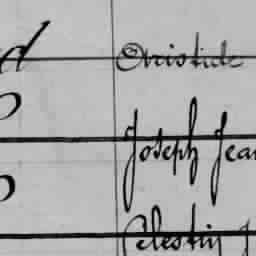 d Aristide
Joseph Jean
Célestin J